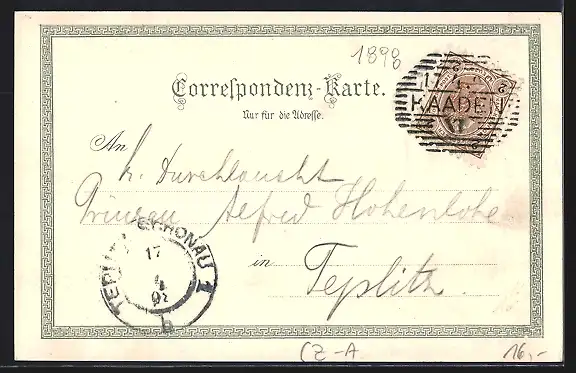 1898
Correspondenz-Karte.
Nur für die Adresse.
17 4
KAADEN
An
Durchlaucht
Prinzen Alfred Hohenlohe
in Teplitz
TEPLITZ SCHÖNAU 1
17
4
98
b
CZ-A
16,-